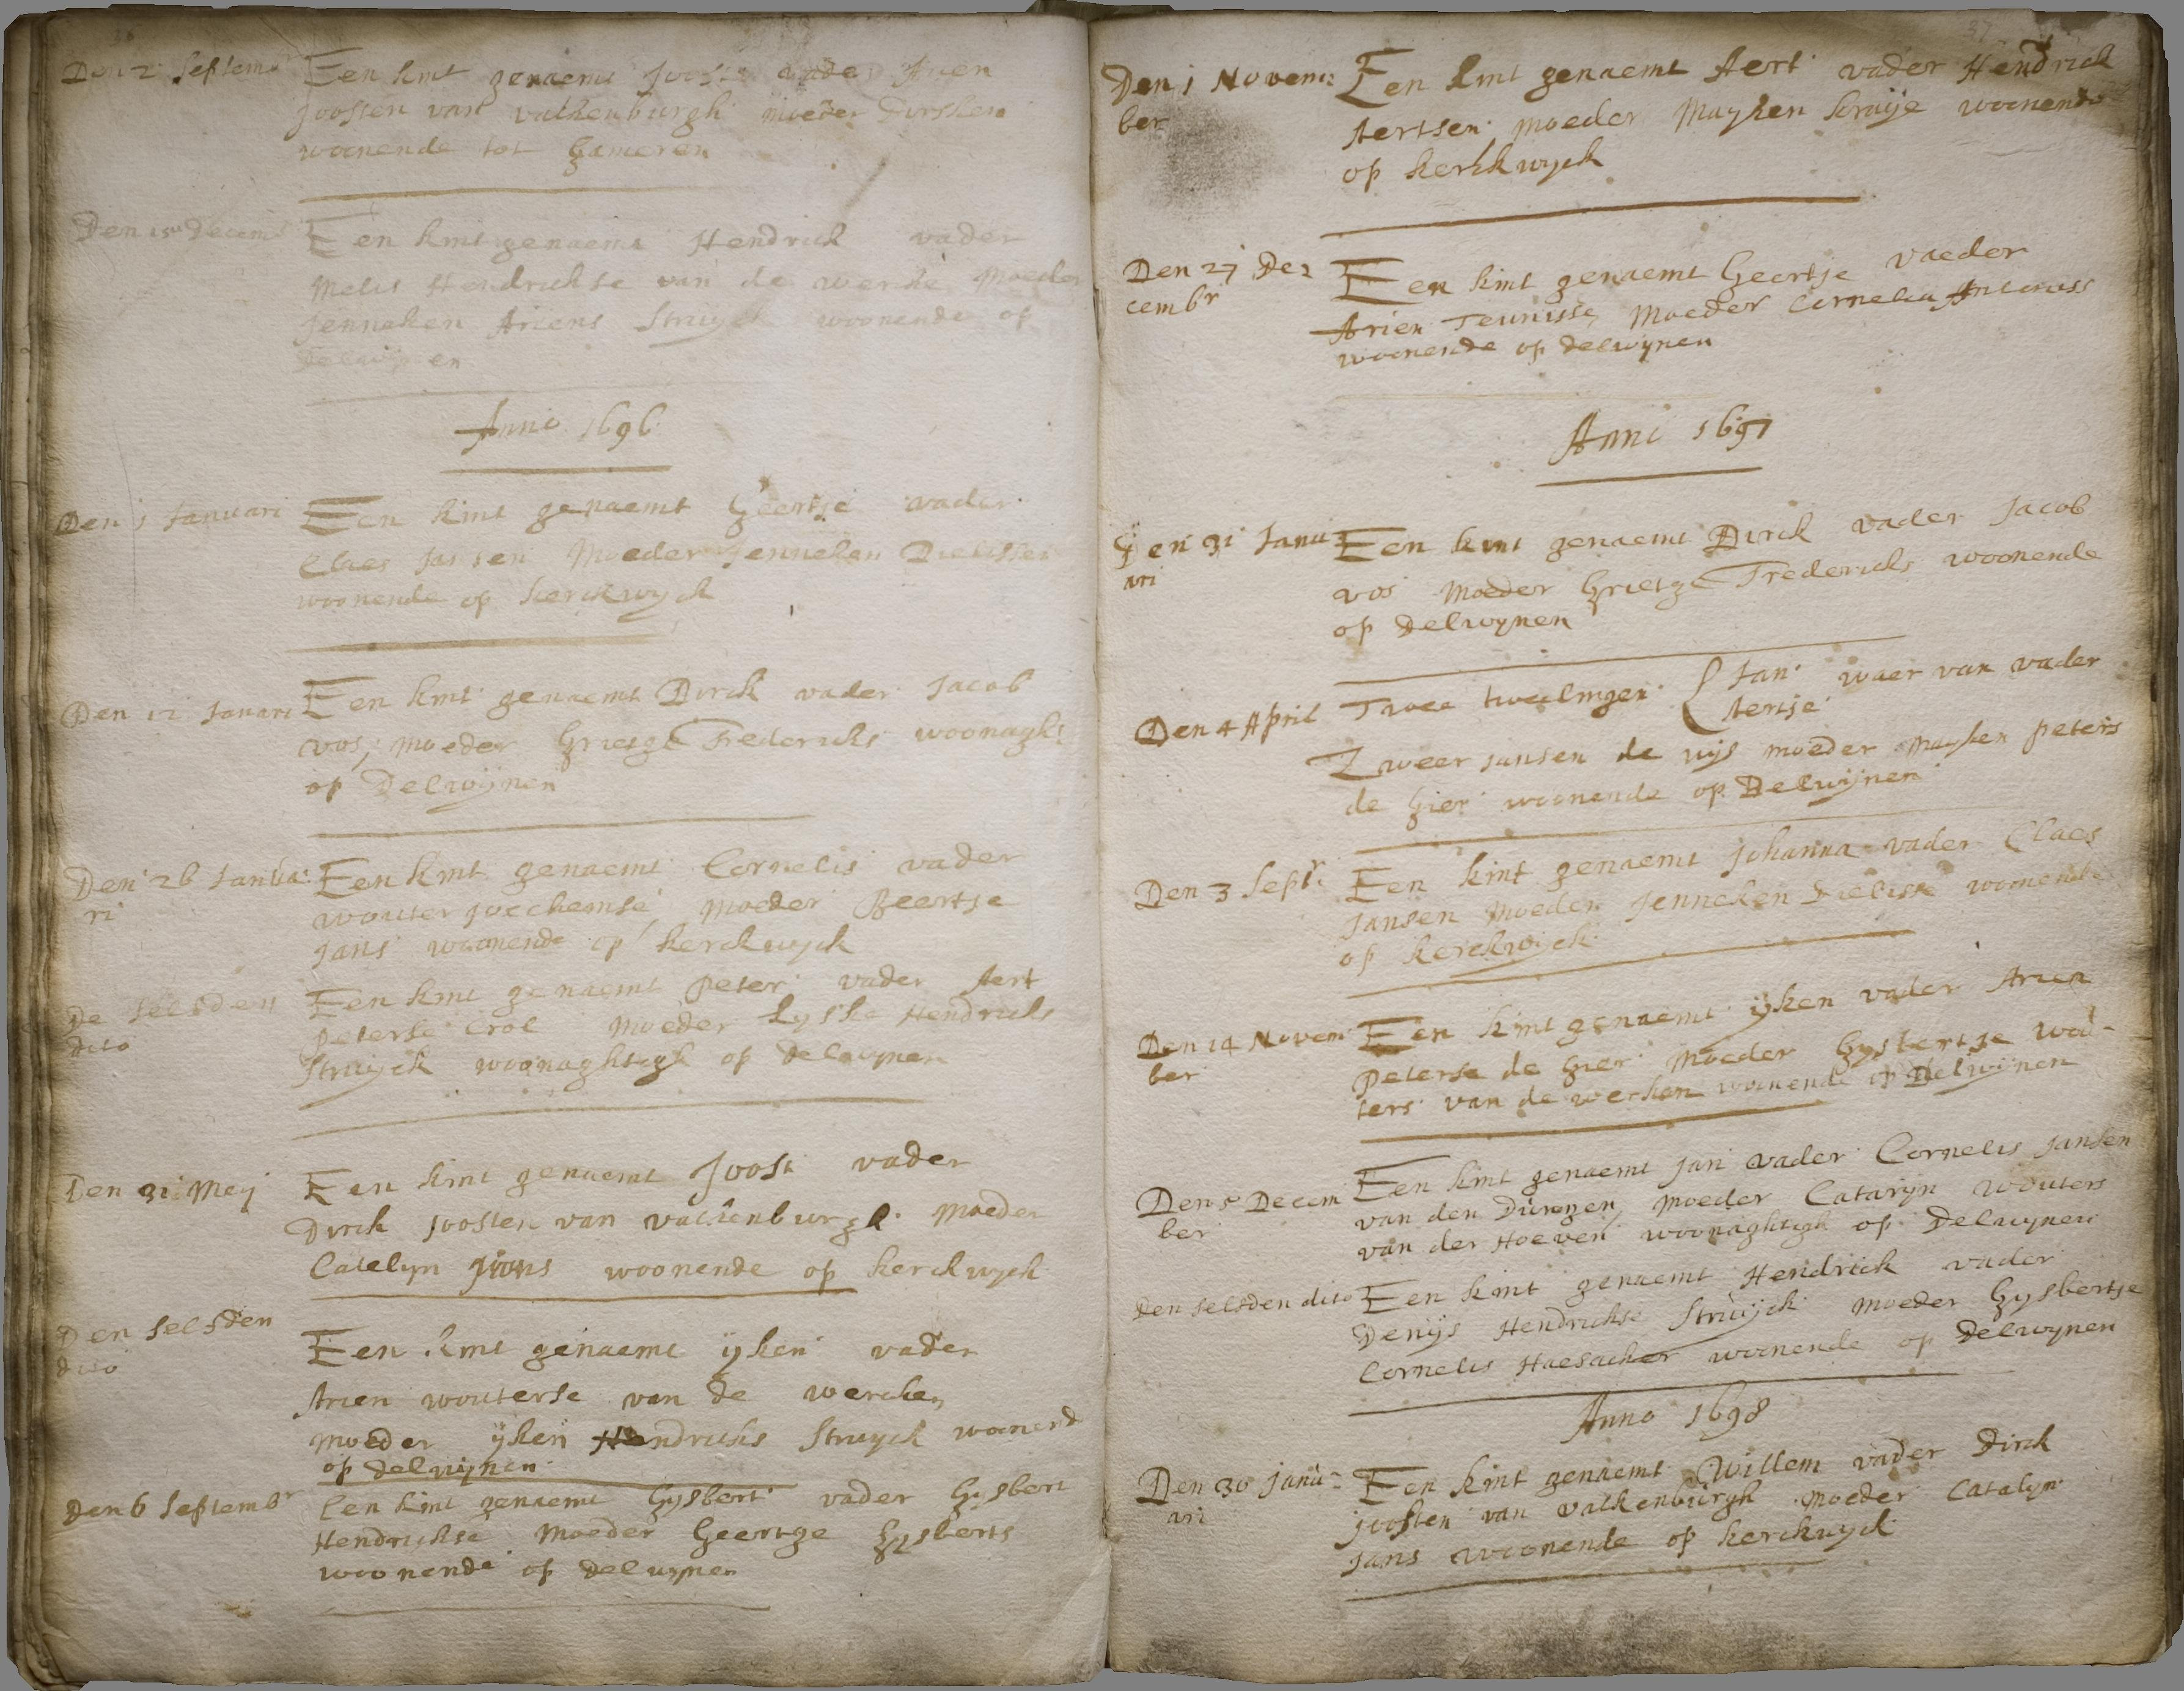 36
Den 2 Septemr Een kint genaemt Joost vader Arien
Joosten van valkenburgh moeder Dirsken
woonende tot Gameren
Den 15 Decemb Een kint genaemt Hendrick vader
Melis Hendrickse van de werke Moeder
Jenneken Ariens Struyck woonende op
Delwijnen
Anno 1696
Den 1 Januari Een kint genaemt Geertje vader
Claes Jansen Moeder Jenneken Dielissen
woonende op kerckwyck
Den 12 Januari Een kint genaemt Dirck vader Jacob
vos, moeder Grietge Fredericks woonagh:
op Delwijnen
Den 26 Janua: Een kint genaemt Cornelis vader
ri wouter Joechemse, Moeder Beertje
Jans woonende op kerckwyck
De selsden Een kint genaemt Peter vader Aert
dito Peterse Crol Moeder Lyske Hendricks
Struyck woonaghtigh op Delwynen
Den 31 Mey Een kint genaemt Joost vader
Dirck Joosten van valkenburgh Moeder
Catelyn Jans woonende op kerckwyck
Den selsden
dito Een kint genaemt ijken vader
Arien wouterse van de wercken
moeder ijken Hendricks Struyck woonend
op delwijnen
Den 6 Septembr Een kint genaemt Gysbert vader Gysbert
Hendrickse Moeder Geertge Gysberts
woonende op delwynen
37
Den 1 Novem: Een kint genaemt Aert vader Hendrick
ber Aertsen moeder Mayken kraije woonende
op kerkkwyck
Den 27 De: Een kint genaemt Geertje vaeder
cembr Arien Teunisse, Moeder Cornelia Antoniss
woonende op delwynen
Anno 1697
Den 31 Janu: Een kint genaemt Dirck vader Jacob
ari vos Moeder Grietge Fredericks woonende
op Delwynen
Den 4 April Twee tweelingen { Jan waer van vader
Aertje
Zweer Jansen de vijs moeder Mayken peters
de Gier woonende op Delwijnen
Den 3 Sept. Een kint genaemt Johanna vader Claes
Jansen Moeder Jenneken Dielisse woonende
op kerckwijck
Den 14 Novem Een kint genaemt ijken vader Arien
ber Peterse de Gier Moeder Gysbertje wou-
ters van de wercken woonende op Delwijnen
Den 5 Decem Een kint genaemt Jan vader Cornelis Jansen
ber van den Dungen, Moeder Catarijn wouters
van der Hoeven woonaghtigh op Delwynen
Den selsden dito Een kint genaemt Hendrick vader
Denijs Hendrickse Struijck moeder Gysbertje
Cornelis Haesacker woonende op Delwynen
Anno 1698
Den 30 Janu: Een kint genaemt Willem vader Dirck
ari Joosten van valkenburgh moeder Catalyn
Jans woonende op kerckwyck